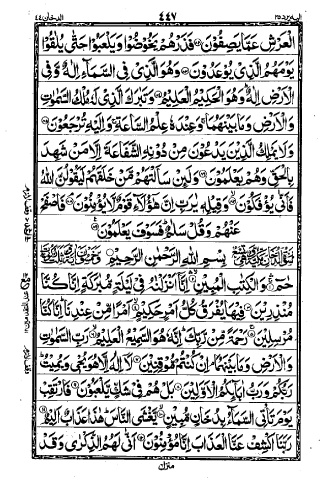 الدخان ٤٤ ٤٤٧ اليه يرد ٢٥
الْعَرْشِ عَمَّا يَصِفُوْنَ فَذَرْهُمْ يَخُوْضُوْا وَيَلْعَبُوْا حَتّٰى يُلٰقُوْا
يَوْمَهُمُ الَّذِيْ يُوْعَدُوْنَ وَهُوَ الَّذِيْ فِي السَّمَآءِ اِلٰهٌ وَّفِي
الْاَرْضِ اِلٰهٌ وَهُوَ الْحَكِيْمُ الْعَلِيْمُ وَتَبٰرَكَ الَّذِيْ لَهٗ مُلْكُ السَّمٰوٰتِ
وَالْاَرْضِ وَمَا بَيْنَهُمَا وَعِنْدَهٗ عِلْمُ السَّاعَةِ وَاِلَيْهِ تُرْجَعُوْنَ
وَلَا يَمْلِكُ الَّذِيْنَ يَدْعُوْنَ مِنْ دُوْنِهِ الشَّفَاعَةَ اِلَّا مَنْ شَهِدَ
بِالْحَقِّ وَهُمْ يَعْلَمُوْنَ وَلَئِنْ سَاَلْتَهُمْ مَّنْ خَلَقَهُمْ لَيَقُوْلُنَّ اللّٰهُ
فَاَنّٰى يُؤْفَكُوْنَ وَقِيْلِهٖ يٰرَبِّ اِنَّ هٰٓؤُلَآءِ قَوْمٌ لَّا يُؤْمِنُوْنَ فَاصْفَحْ
عَنْهُمْ وَقُلْ سَلٰمٌ فَسَوْفَ يَعْلَمُوْنَ
بِسْمِ اللّٰهِ الرَّحْمٰنِ الرَّحِيْمِ
حٰمٓ وَالْكِتٰبِ الْمُبِيْنِ اِنَّآ اَنْزَلْنٰهُ فِيْ لَيْلَةٍ مُّبٰرَكَةٍ اِنَّا كُنَّا
مُنْذِرِيْنَ فِيْهَا يُفْرَقُ كُلُّ اَمْرٍ حَكِيْمٍ اَمْرًا مِّنْ عِنْدِنَا اِنَّا كُنَّا
مُرْسِلِيْنَ رَحْمَةً مِّنْ رَّبِّكَ اِنَّهٗ هُوَ السَّمِيْعُ الْعَلِيْمُ رَبِّ السَّمٰوٰتِ
وَالْاَرْضِ وَمَا بَيْنَهُمَا اِنْ كُنْتُمْ مُّوْقِنِيْنَ لَآ اِلٰهَ اِلَّا هُوَ يُحْيٖ وَيُمِيْتُ
رَبُّكُمْ وَرَبُّ اٰبَآئِكُمُ الْاَوَّلِيْنَ بَلْ هُمْ فِيْ شَكٍّ يَّلْعَبُوْنَ فَارْتَقِبْ
يَوْمَ تَاْتِي السَّمَآءُ بِدُخَانٍ مُّبِيْنٍ يَّغْشَى النَّاسَ هٰذَا عَذَابٌ اَلِيْمٌ
رَبَّنَا اكْشِفْ عَنَّا الْعَذَابَ اِنَّا مُؤْمِنُوْنَ اَنّٰى لَهُمُ الذِّكْرٰى وَقَدْ
منزل